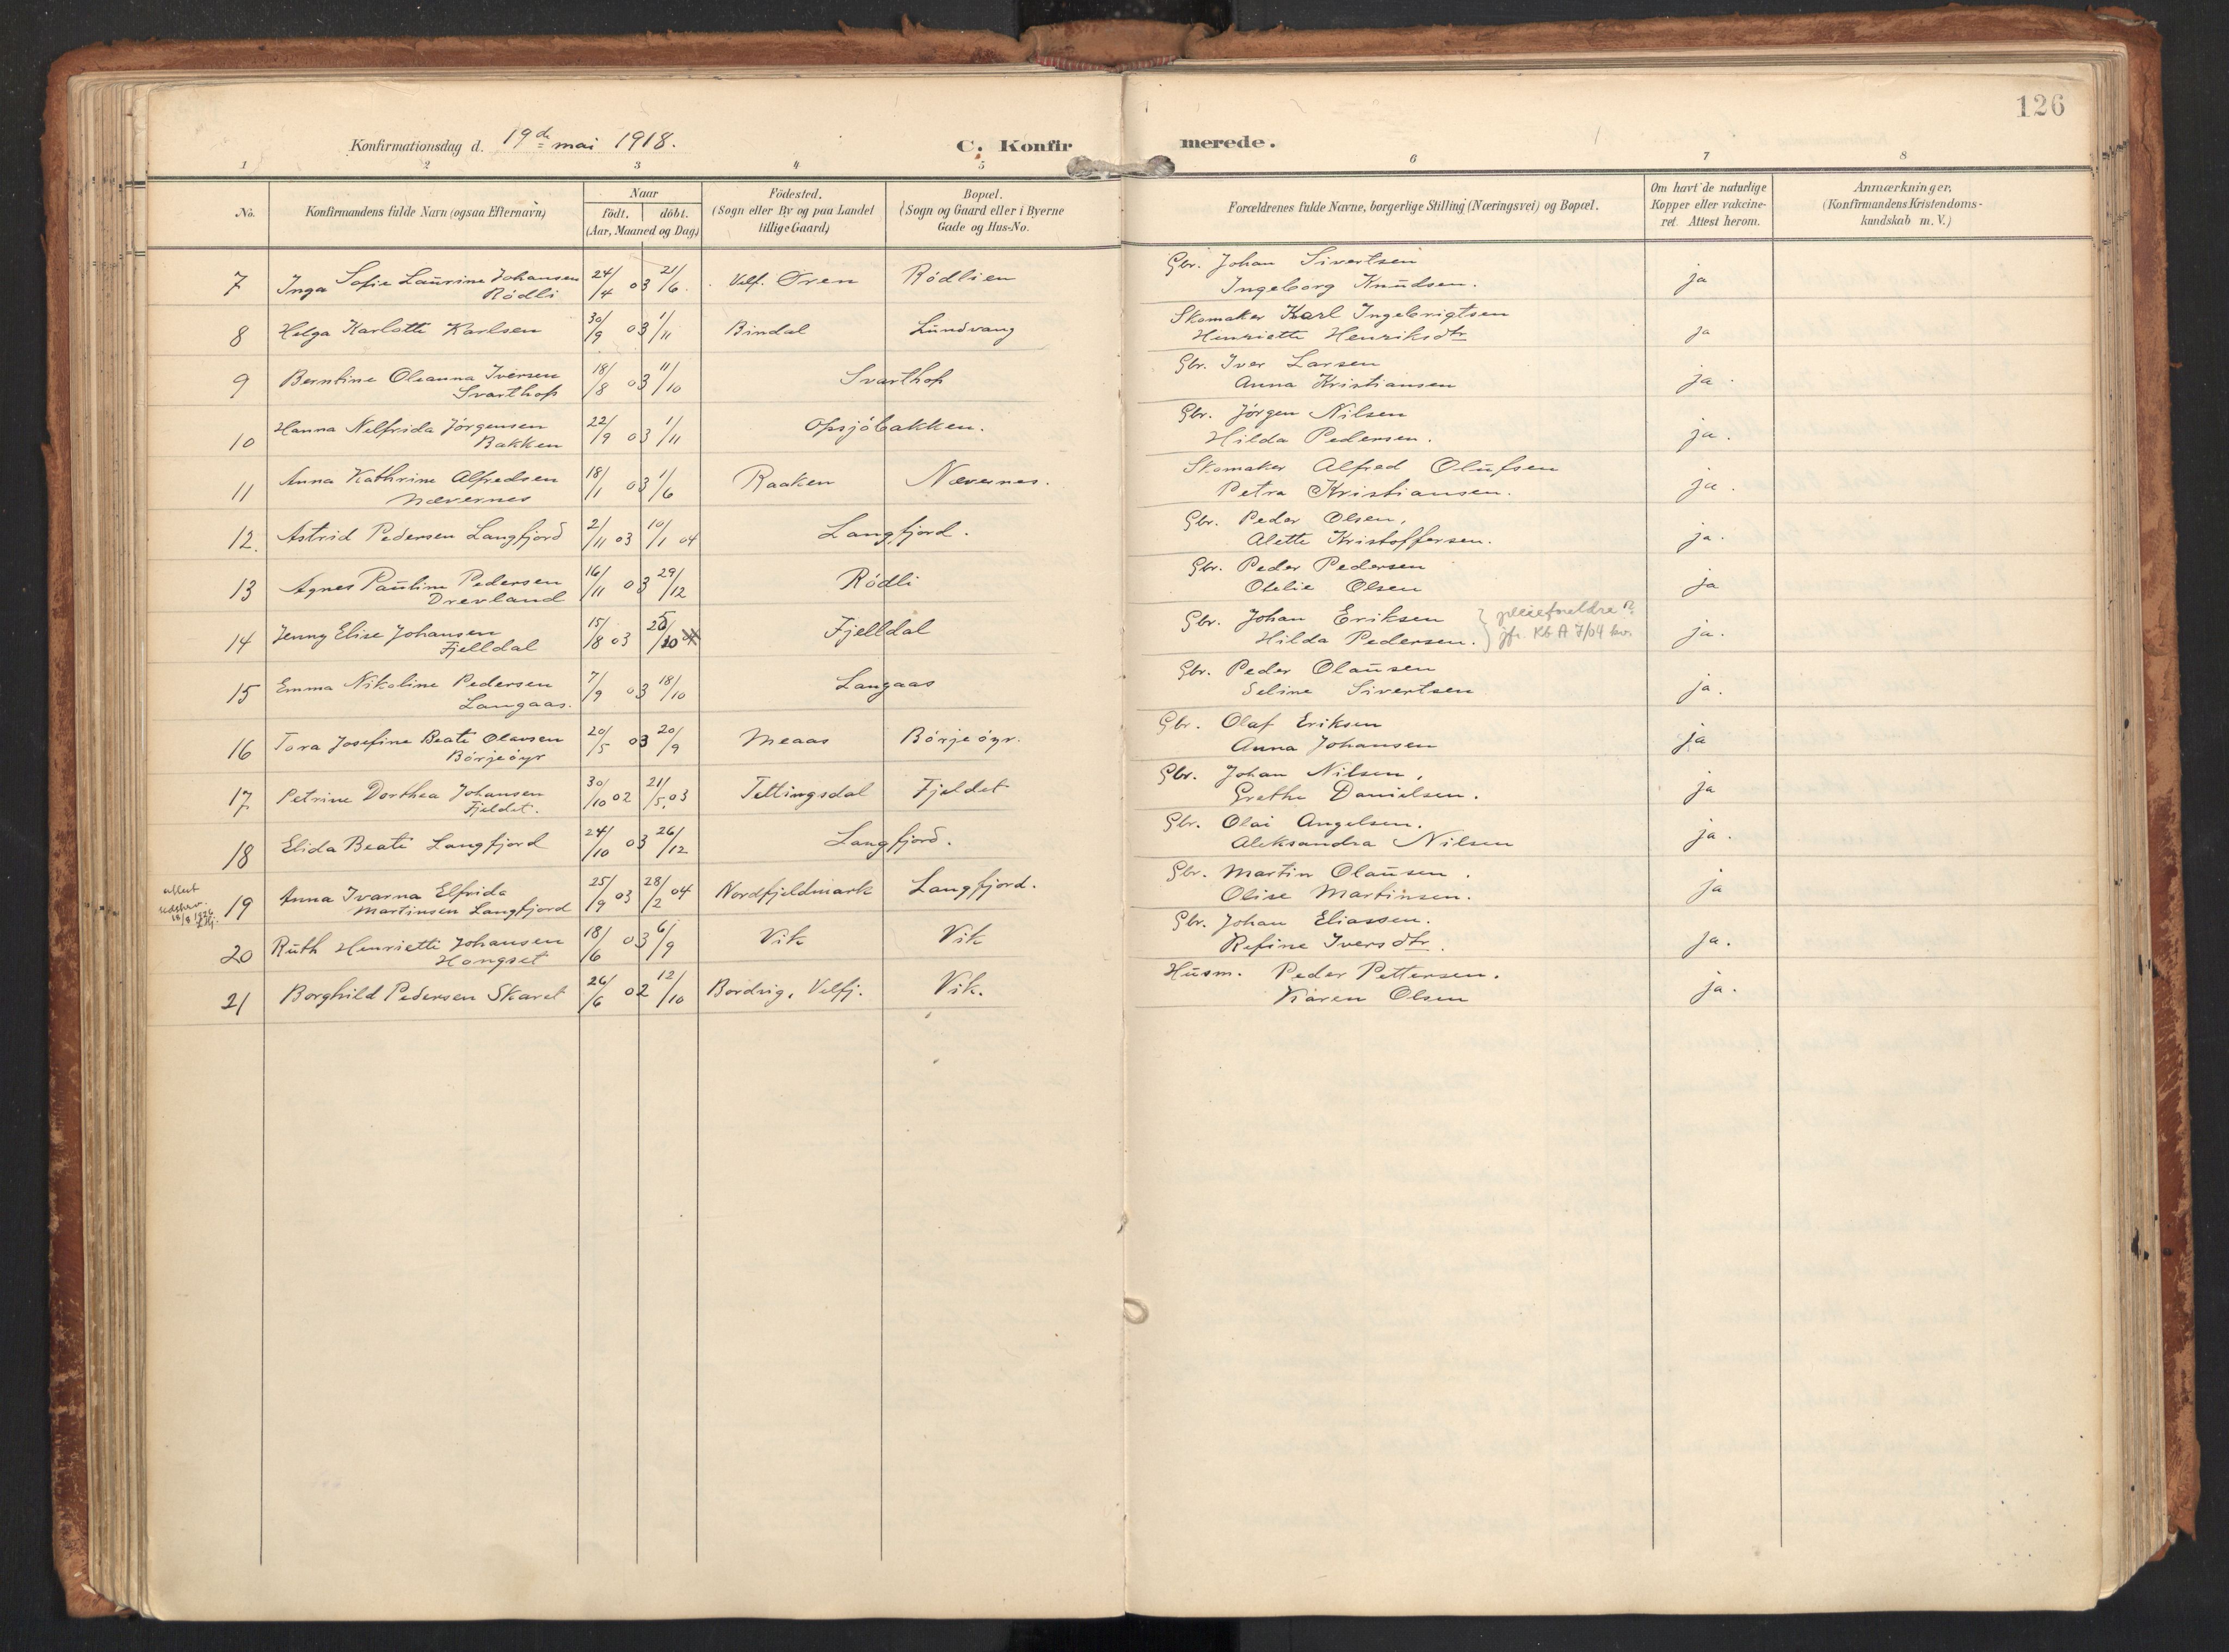 126
Konfirmationsdag d. 19de mai 1918. C. Konfir merede.
1 2 3 4 5 6 7 8
No. Konfirmandens fulde Navn (ogsaa Efternavn) Naar födt, döbt. (Aar, Maaned og Dag) Födested, (Sogn eller By og paa Landet tillige Gaard) Bopæl. (Sogn og Gaard eller i Byerne Gade og Hus-No. Forældrenes fulde Navne, borgerlige Stilling (Næringsvei) og Bopæl. Om havt de naturlige Kopper eller vakcineret. Attest herom. Anmærkninger, (Konfirmandens Kristendomskundskab m. V.)
7 Inga Sofie Laurine Johansen 24/4 03 21/6. Velf. Oren Rödlien Gbr. Johan Sivertsen ja
Rödli Ingeborg Knudsen.
8 Helga Karlotte Karlsen 30/9 03 1/11 Bindal Lundvang Skomaker Karl Ingebrigtsen ja
Henriette Henriksdtr
9 Berntine Oleanna Iversen 18/8 03 11/10 Svarthof Gbr. Iver Larsen ja.
Svarthof Anna Kristiansen
10 Hanna Nelfrida Jörgensen 22/9 03 1/11 Opsjöbakken. Gbr. Jörgen Nilsen ja.
Bakken Hilda Pedersen.
11 Anna Kathrine Alfredsen 18/1 03 1/6 Raaken Nævernes. Skomaker Alfred Olufsen ja.
Nævernes Petra Kristiansen.
12. Astrid Pedersen Langfjord 2/11 03 10/1 04 Langfjord. Gbr. Peder Olsen, ja.
Alette Kristoffersen.
13 Agnes Pauline Pedersen 16/11 03 29/12 Rödli Gbr. Peder Pedersen ja
Drevland Otelie Olsen
14 Jenny Elise Johansen 15/8 03 25/10 Fjelldal Gbr. Johan Eriksen pleieforeldre? ja.
Fjelldal Hilda Pedersen. jfr. Kb A 7/04 kv.
15 Emma Nikoline Pedersen 7/9 03 18/10 Langaas Gbr. Peder Olausen ja.
Langaas. Seline Sivertsen
16 Tora Josefine Beate Olavsen 20/5 03 20/9 Meaas Börjeöyr. Gbr. Olaf Eriksen ja
Börjeöyr Anna Johansen
17 Petrine Dorthea Johansen 30/10 02 21/5.03 Tettingsdal Fjeldet Gbr. Johan Nilsen, ja
Fjeldet. Grethe Danielsen.
18 Elida Beate Langfjord 24/10 03 26/12 Langfjord. Gbr. Olai Angelsen. ja.
Aleksandra Nilsen
attest
19 Anna Ivarna Elfrida 25/9 03 28/2 04 Nordfjeldmark Langfjord. Gbr. Martin Olausen. ja
18/8 1926
Martinsen Langfjord Olise Martinsen.
20 Ruth Henriette Johansen 18/6 03 6/9 Vik Vik Gbr. Johan Eliassen. ja.
Hongset Refine Iversdtr.
21 Borghild Pedersen Skaret 26/6 02 12/10 Bordvig, Velfj. Vik. Husm. Peder Pettersen. ja.
Karen Olsen